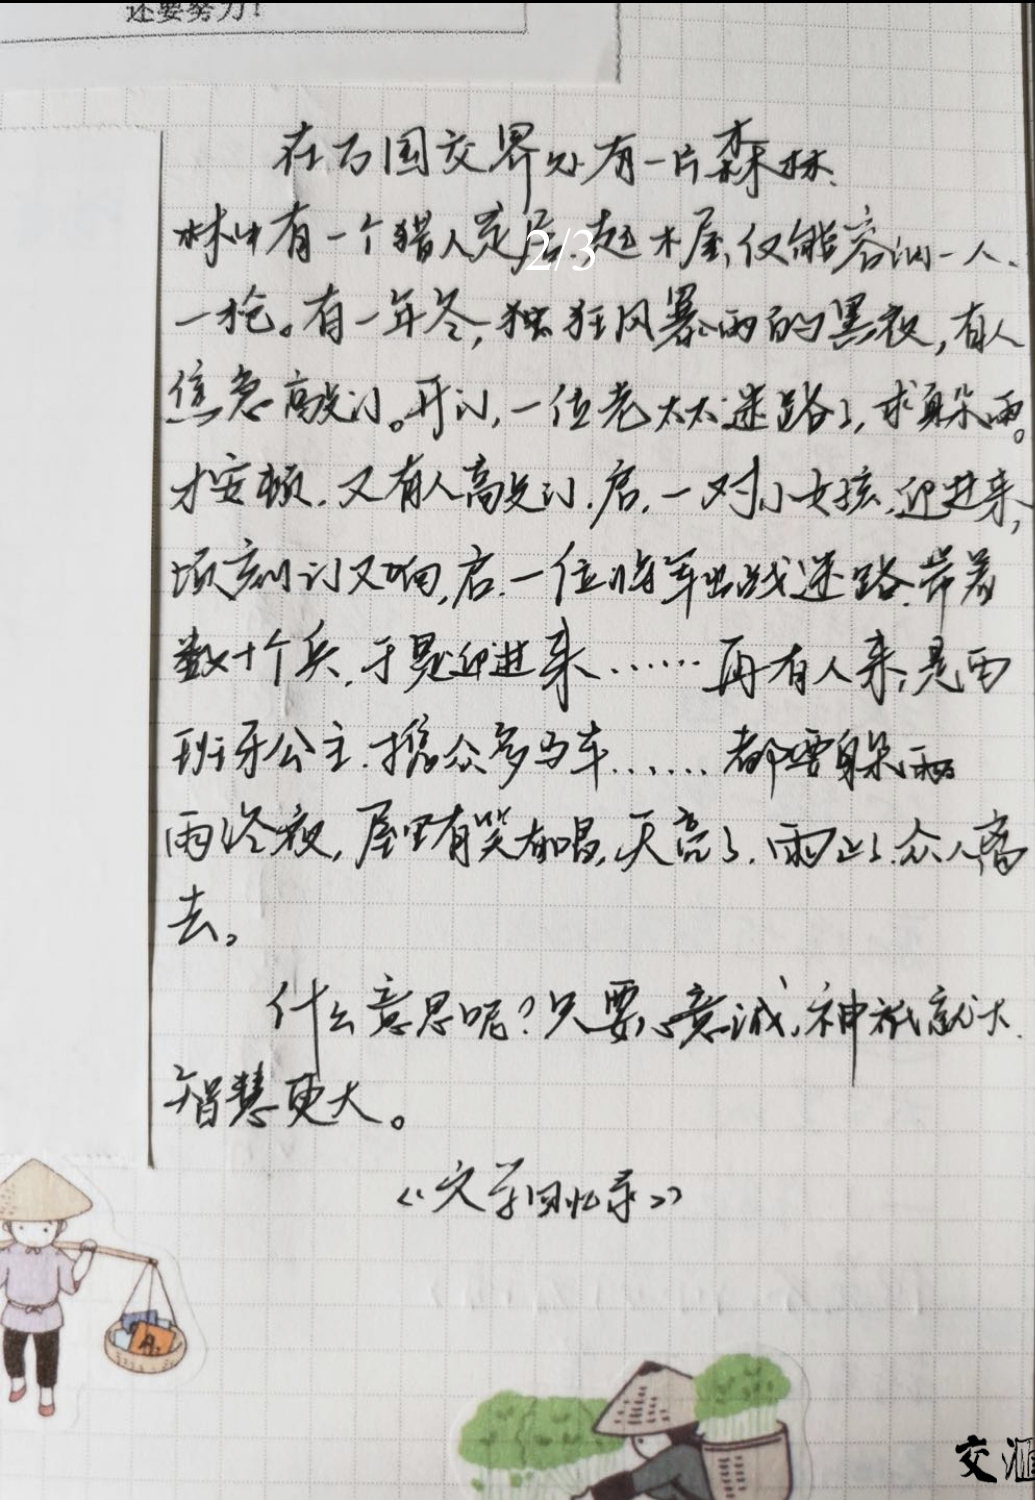 还要努力！
在万国交界处有一片森林.
林中有一个猎人定居.起木屋,仅能容纳一人、
2/3
一枪。有一年冬,独狂风暴雨的黑夜,有人
焦急高叟门。开门,一位老太太迷路了,求躲雨。
才安顿.又有人高叟门.启.一对小女孩.迎进来,
顷刻门又响,启.一位将军出战迷路.带着
数十个兵.于是迎进来……再有人来,是西
班牙公主.携众多马车……都要躲雨
雨冷夜,屋里有笑有唱,天亮了.雨止了.众人离
去。
什么意思呢?只要心意诚,神祇就大.
智慧更大。
《文学回忆录》
交汇